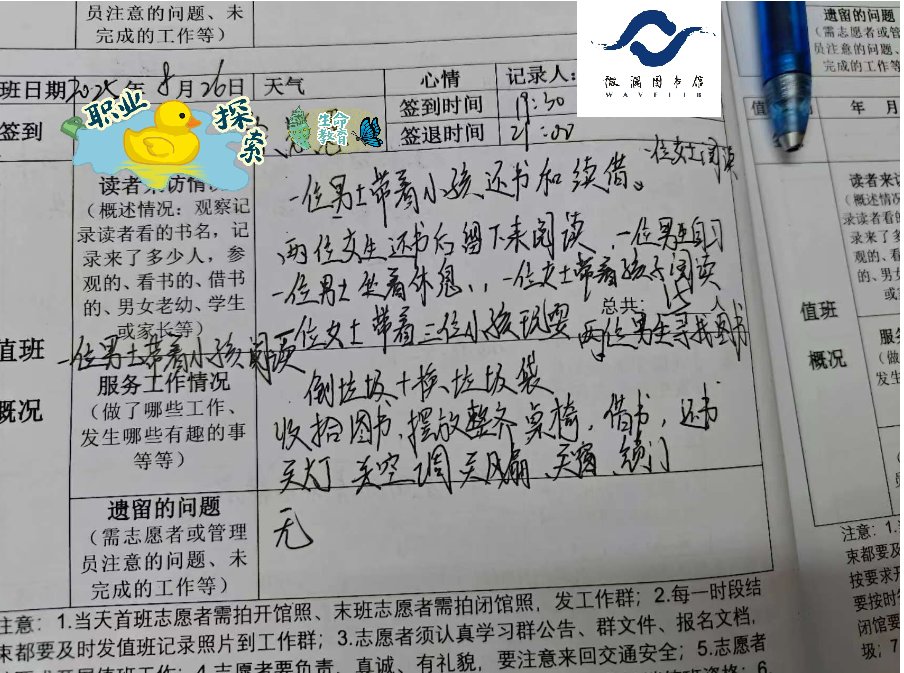 员注意的问题、未
完成的工作等）
班日期2025年8月26日 天气 心情 记录人：
签到 签到时间 19:30
签退时间 21:00
职业
探索
生命
教育
微澜图书馆
WAVELIB
读者来访情况
（概述情况：观察记
录读者看的书名，记
录来了多少人，参
观的、看书的、借书
的、男女老幼、学生
或家长等）
一位女士阅读
一位男士带着小孩还书和续借。
两位女生还书后留下来阅读、一位男生自习
一位男士坐着休息、一位女士带着孩子阅读
总共：15人
一位女士带着三位小孩玩耍 两位男生寻找图书
一位男士带着小孩阅读
值班
概况
服务工作情况
（做了哪些工作、
发生哪些有趣的事
等等）
倒垃圾+换垃圾袋
收拾图书，摆放整齐桌椅，借书，还书
关灯 关空调 关风扇、关窗、锁门
遗留的问题
（需志愿者或管理
员注意的问题、未
完成的工作等）
无
注意：1.当天首班志愿者需拍开馆照、末班志愿者需拍闭馆照，发工作群；2.每一时段结
束都要及时发值班记录照片到工作群；3.志愿者须认真学习群公告、群文件、报名文档，
志愿者要负责、真诚、有礼貌，要注意来回交通安全；5.志愿者
遗留的问题
（需志愿者或管
员注意的问题、
完成的工作等
值 年 月
读者来访
（概述情况
录读者看的
录来了多
观的、看
的、男女
或家
值班
概况
服务
（做
发生
注意：1.
束都要及
按要求开
要按时
闭馆要
圾；7